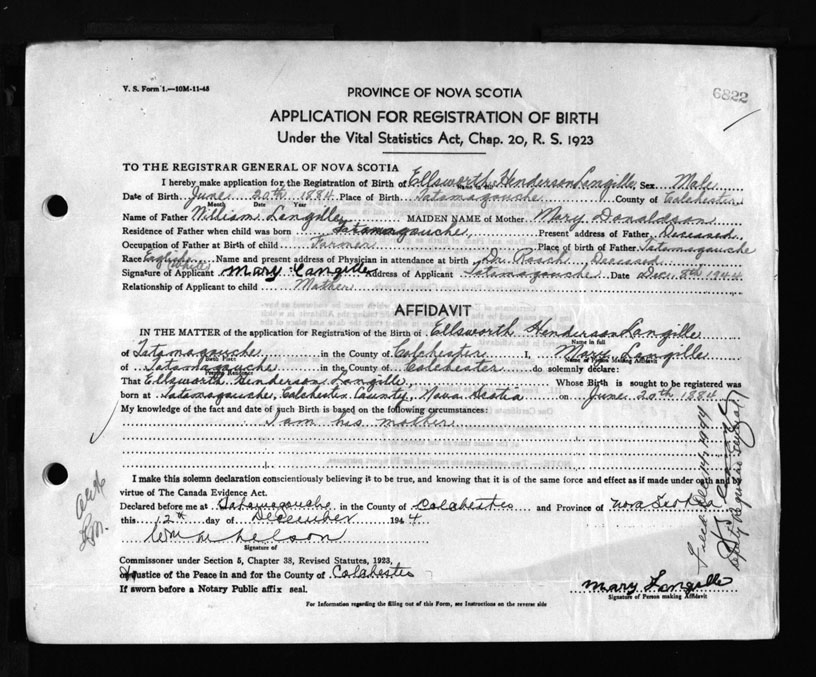 V. S. Form 1.—10M-11-43
6822
PROVINCE OF NOVA SCOTIA
APPLICATION FOR REGISTRATION OF BIRTH
Under the Vital Statistics Act, Chap. 20, R. S. 1923
TO THE REGISTRAR GENERAL OF NOVA SCOTIA
I hereby make application for the Registration of Birth of Ellsworth Henderson Langille Sex Male
Date of Birth June 20th 1884 Place of Birth Tatamagouche County of Colchester
Month Date Year
Name of Father William Langille MAIDEN NAME of Mother Mary Donaldson
Residence of Father when child was born Tatamagouche Present address of Father Deceased
Occupation of Father at Birth of child Farmer Place of birth of Father Tatamagouche
Race English (White) Name and present address of Physician in attendance at birth Dr. Roach Deceased
Signature of Applicant Mary Langille Address of Applicant Tatamagouche Date Dec. 8th 1944
Relationship of Applicant to child Mother
AFFIDAVIT
IN THE MATTER of the application for Registration of the Birth of Ellsworth Henderson Langille
Name in full
of Tatamagouche in the County of Colchester I, Mary Langille
Birth Place Name of Person Making Affidavit
of Tatamagouche in the County of Colchester do solemnly declare:
Present Residence
That Ellsworth Henderson Langille, Whose Birth is sought to be registered was
born at Tatamagouche, Colchester County, Nova Scotia on June 20th 1884
My knowledge of the fact and date of such Birth is based on the following circumstances:
I am his mother
I make this solemn declaration conscientiously believing it to be true, and knowing that it is of the same force and effect as if made under oath and by
virtue of The Canada Evidence Act.
Declared before me at Tatamagouche in the County of Colchester and Province of Nova Scotia
this 12th day of December 1944
Wm Nelson
Signature of
Commissoner under Section 5, Chapter 38, Revised Statutes, 1923,
or Justice of the Peace in and for the County of Colchester
If sworn before a Notary Public affix seal.
Mary Langille
Signature of Person making Affidavit
For Information regarding the filling out of this Form, see Instructions on the reverse side
Filed Dec 14, 1944
Deputy Registrar General